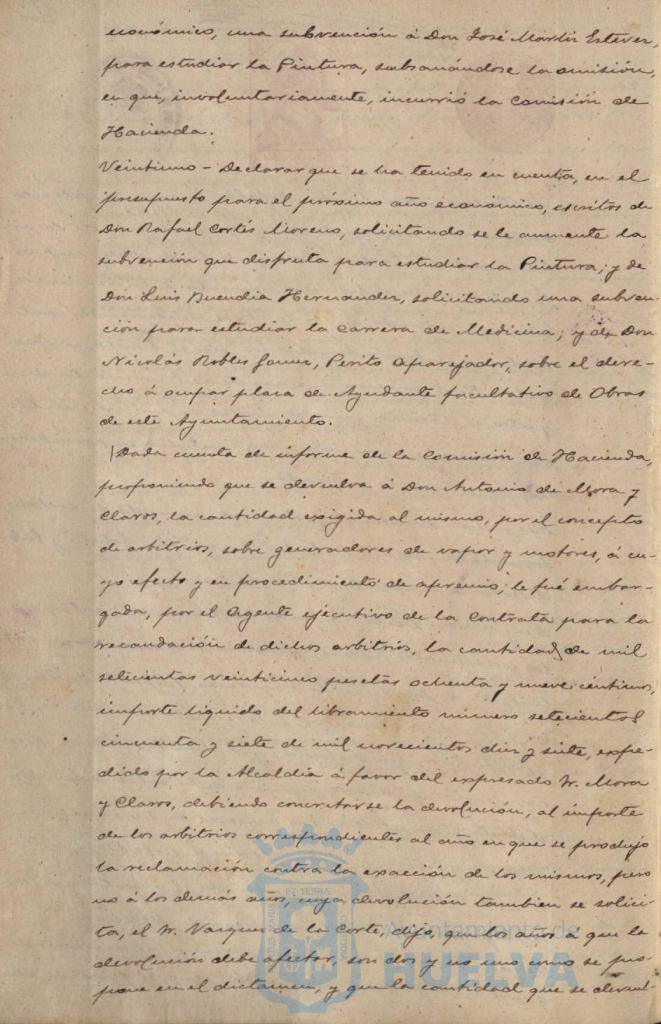 económico, una subvención á Don José Martín Estevez,
para estudiar la Pintura, subsanándose la omisión,
en que, involuntariamente, incurrió la Comisión de
Hacienda.
Veintiuno - Declarar que se ha tenido en cuenta, en el
presupuesto para el próximo año económico, escritos de
Don Rafael Cortés Moreno, solicitando se le aumente la
subvención que disfruta para estudiar la Pintura; y de
Don Luis Buendia Hernandez, solicitando una subven-
ción para estudiar la carrera de Medicina; y de Don
Nicolás Robles Gomez, Perito Aparejador, sobre el dere-
cho á ocupar plaza de Ayudante facultativo de Obras
de este Ayuntamiento.
Dada cuenta de informe de la Comisión de Hacienda,
proponiendo que se devuelva á Don Antonio de Mora y
Claros, la cantidad exigida al mismo, por el concepto
de arbitrios, sobre generadores de vapor y motores, á cu-
yo efecto y en procedimiento de apremio, le fué embar-
gada, por el Agente ejecutivo de la Contrata para la
recaudación de dichos arbitrios, la cantidad de mil
setecientas veinticinco pesetas ochenta y nueve céntimos,
importe liquido del libramiento número setecientos
cincuenta y siete de mil novecientos diez y siete, expe-
dido por la Alcaldia á favor del expresado Sr. Mora
y Claros, debiendo concretarse la devolución, al importe
de los arbitrios correspondientes al año en que se produjo
la reclamación contra la exacción de los mismos, pero
no á los demás años, cuya devolución tambien se solici-
ta, el Sr. Vazquez de la Corte, dijo, que los años á que la
devolución debe afectar, son dos y no uno como se pro-
pone en el dictamen, y que la cantidad que se devuel-
Ayuntamiento de
HUELVA